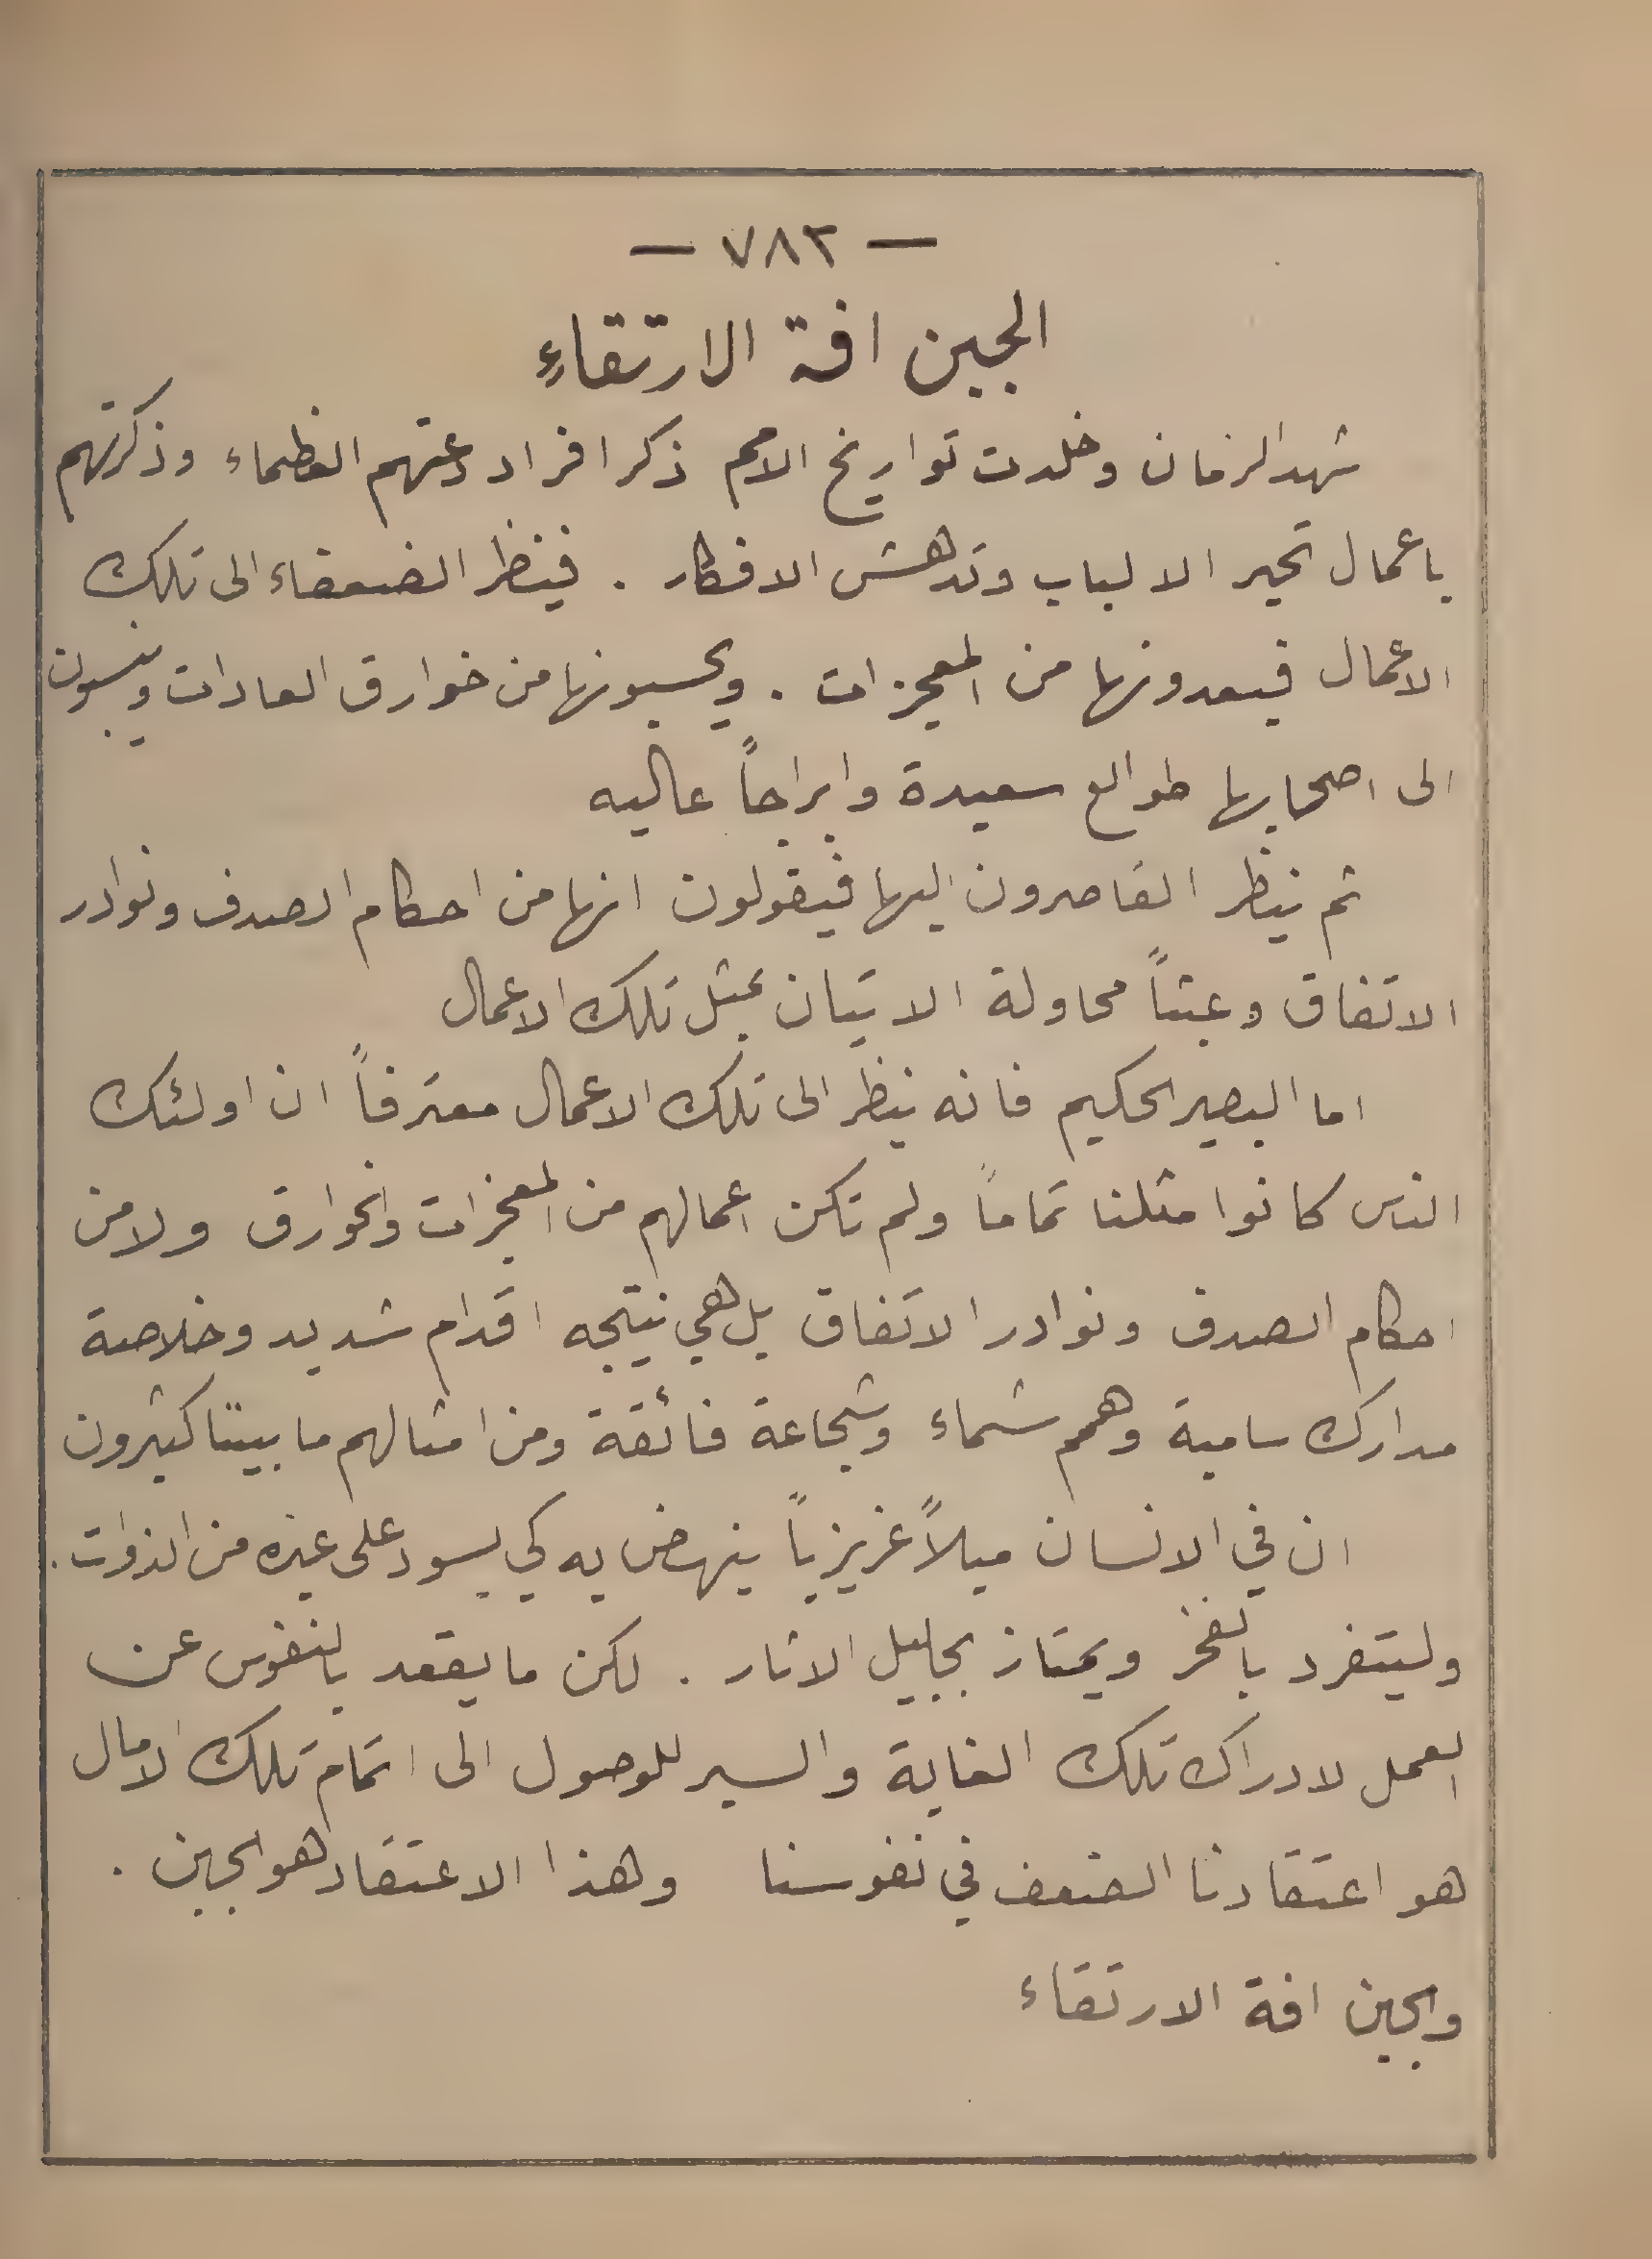 — ٧٨٢ —
الجبن افة الارتقاءِ
شهد الزمان وخلدت تواريخ الامم ذكر افراد دعتهم العظماء وذكرتهم
باعمال تحير الالباب وتدهش الافكار . فينظر الضعفاء الى تلك
الاعمال فيعدونها من المعجزات . ويحسبونها من خوارق العادات وينسبون
الى اصحابها طوالع سعيدة وابراجاً عاليه
ثم ينظر القاصرون اليها فيقولون انها من احكام الصدف ونوادر
الاتفاق وعبثاً محاولة الاتيان بمثل تلك الاعمال
اما البصير الحكيم فانه ينظر الى تلك الاعمال معترفاً ان اولئك
الناس كانوا مثلنا تماماً ولم تكن اعمالهم من المعجزات والخوارق ولا من
احكام الصدف ونوادر الاتفاق بل هي نتيجه اقدام شديد وخلاصة
مدارك سامية وهمم شماء وشجاعة فائقة ومن امثالهم ما بيننا كثيرون
ان في الانسان ميلاً غريزياً ينهض به كي يسود على غيره من الذوات .
وليتفرد بالفخر ويمتاز بجليل الاثار . لكن ما يقعد بالنفوس عن
العمل لادراك تلك الغاية والسير للوصول الى اتمام تلك الامال
هو اعتقادنا الضعف في نفوسنا وهذا الاعتقاد هو الجبن .
والجبن افة الارتقاء